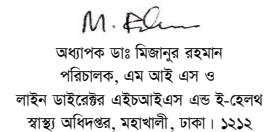 অধ্যাপক ডাঃ মিজানুর রহমান
পরিচালক, এম আই এস ও
লাইন ডাইরেক্টর এইচআইএস এন্ড ই-হেলথ
স্বাস্থ্য অধিদপ্তর, মহাখালী, ঢাকা। ১২১২